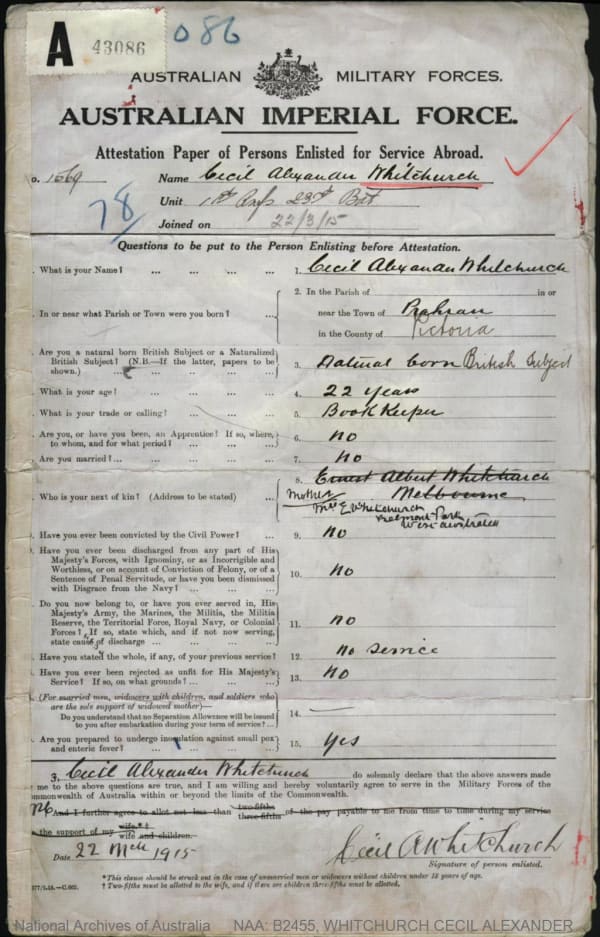 A 43086 086
AUSTRALIAN MILITARY FORCES.
AUSTRALIAN IMPERIAL FORCE.
Attestation Paper of Persons Enlisted for Service Abroad.
o. 1669 Name Cecil Alexander Whitchurch
78 Unit 23rd Bat
Joined on 22/3/15
Questions to be put to the Person Enlisting before Attestation.
. What is your Name? ... ... ... ... 1. Cecil Alexander Whitchurch
2. In the Parish of in or
. In or near what Parish or Town were you born? ... near the Town of Prahran
in the County of Victoria
. Are you a natural born British Subject or a Naturalized
British Subject? (N.B.—If the latter, papers to be 3. Natural born British Subject
shown.)
. What is your age? ... ... ... ... 4. 22 years
. What is your trade or calling? ... ... ... 5. Book Keeper
. Are you, or have you been, an Apprentice? If so, where, 6. No
to whom, and for what period? ... ... ...
. Are you married?... ... ... ... ... 7. No
8. Ernest Albert Whitchurch
. Who is your next of kin? (Address to be stated) ... Mother Melbourne
Mrs E Whitchurch
Belmont Park
West Australia
. Have you ever been convicted by the Civil Power? ... 9. No
. Have you ever been discharged from any part of His
Majesty's Forces, with Ignominy, or as Incorrigible and
Worthless, or on account of Conviction of Felony, or of a 10. No
Sentence of Penal Servitude, or have you been dismissed
with Disgrace from the Navy? ... ... ...
. Do you now belong to, or have you ever served in, His
Majesty's Army, the Marines, the Militia, the Militia
Reserve, the Territorial Force, Royal Navy, or Colonial 11. No
Forces? If so, state which, and if not now serving,
state cause of discharge ... ... ...
. Have you stated the whole, if any, of your previous service? 12. No service
. Have you ever been rejected as unfit for His Majesty's 13. No
Service? If so, on what grounds? ... ... ...
. (For married men, widowers with children, and soldiers who
are the sole support of widowed mother)— 14. —
Do you understand that no Separation Allowance will be issued
to you after embarkation during your term of service? ...
. Are you prepared to undergo inoculation against small pox 15. Yes
and enteric fever? ... ... ... ...
3, Cecil Alexander Whitchurch do solemnly declare that the above answers made
me to the above questions are true, and I am willing and hereby voluntarily agree to serve in the Military Forces of the
mmonwealth of Australia within or beyond the limits of the Commonwealth.
And I further agree to allot not less than two-fifths three-fifths of the pay payable to me from time to time during my service
the support of my wife*† wife and children.
Date 22 Mch 1915 Cecil A Whitchurch
Signature of person enlisted.
*This clause should be struck out in the case of unmarried men or widowers without children under 18 years of age.
† Two-fifths must be allotted to the wife, and if there are children three-fifths must be allotted.
National Archives of Australia NAA: B2455, WHITCHURCH CECIL ALEXANDER